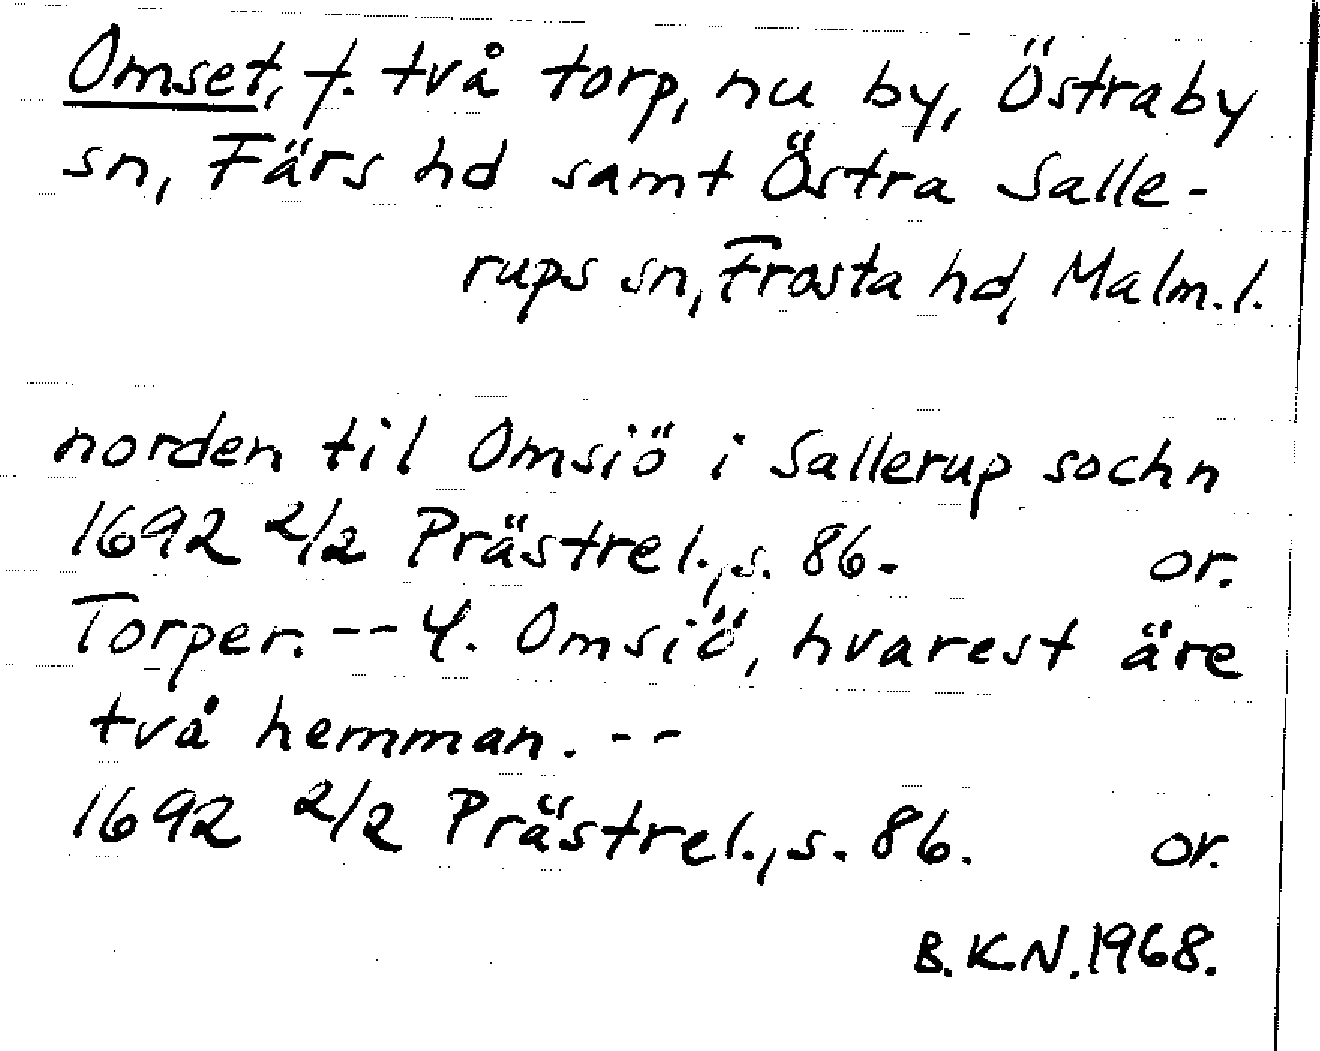 Omset, f. två torp, nu by, Östraby
sn, Färs hd samt Östra Salle-
rups sn, Frosta hd, Malm. l.
norden til Omsiö i Sallerup sochn
1692 2/2 Prästrel., s. 86. or.
Torper. -- 4. Omsiö, hvarest äre
två hemman. --
1692 2/2 Prästrel., s. 86. or.
B.K.N. 1968.